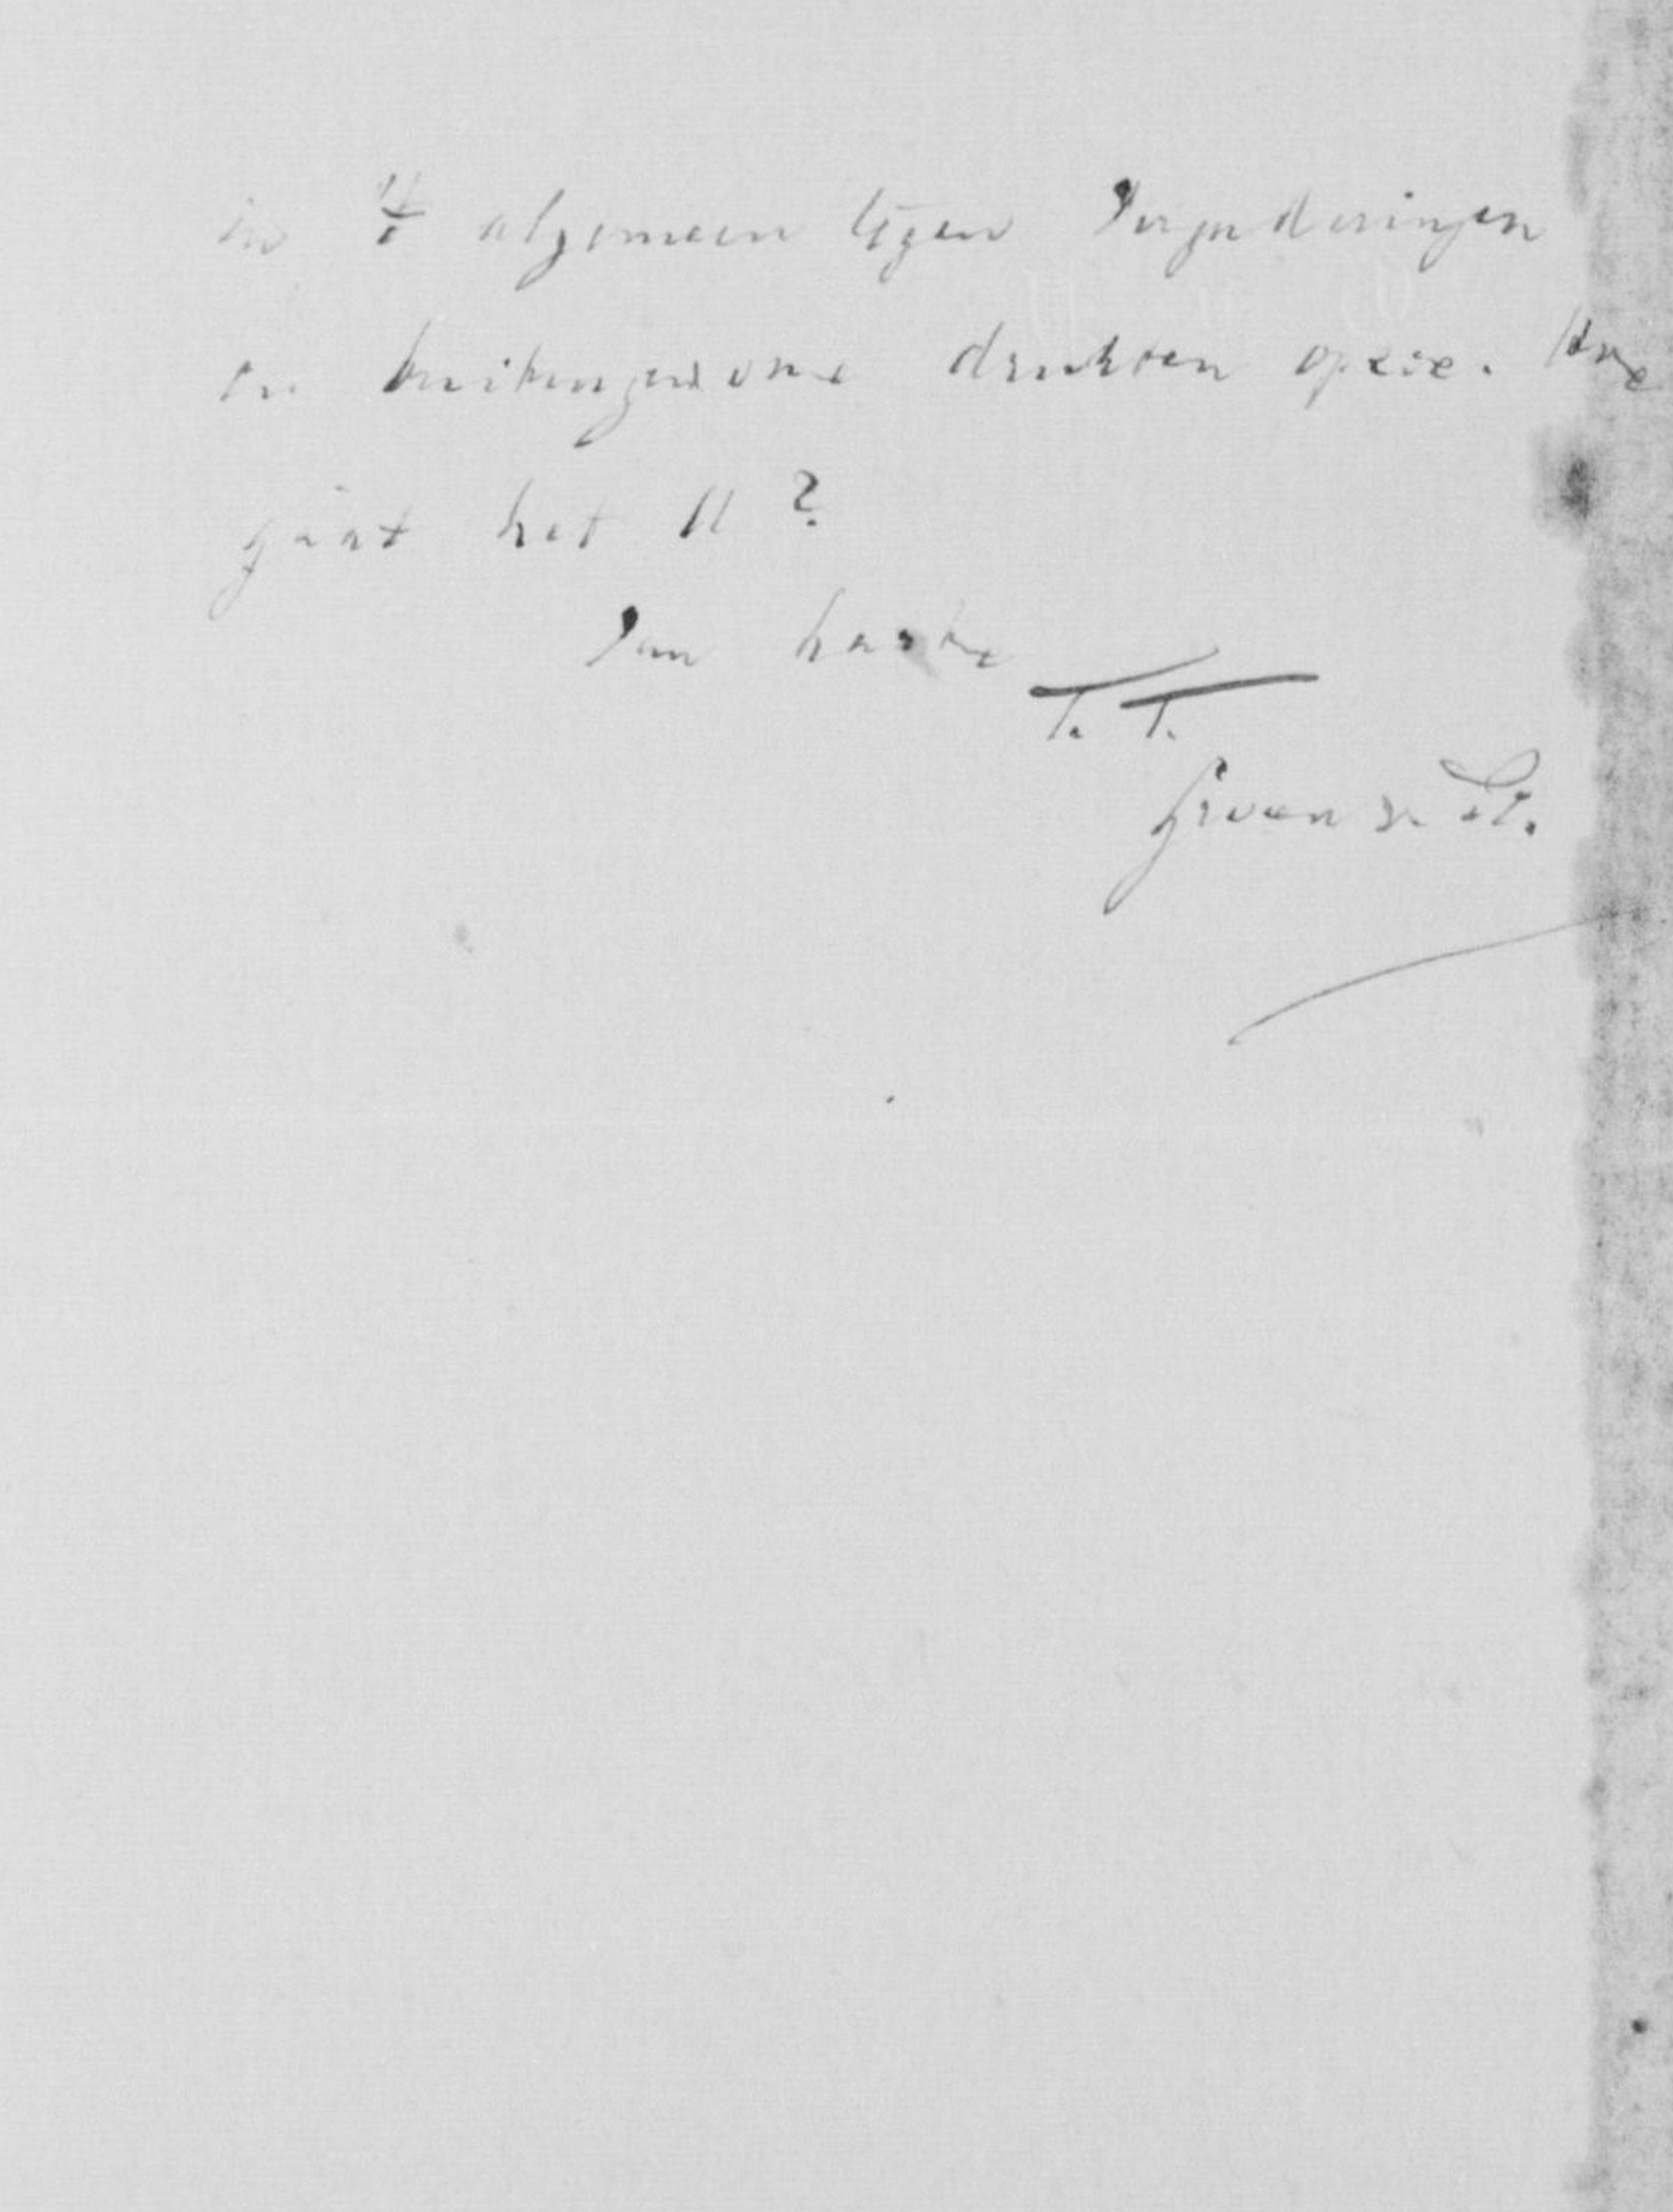 in 't algemeen tegen vergaderingen
en buitengewone drukten opzie. Hoe
gaat het U?
Van harte
T. T.
Groen v. Pr.